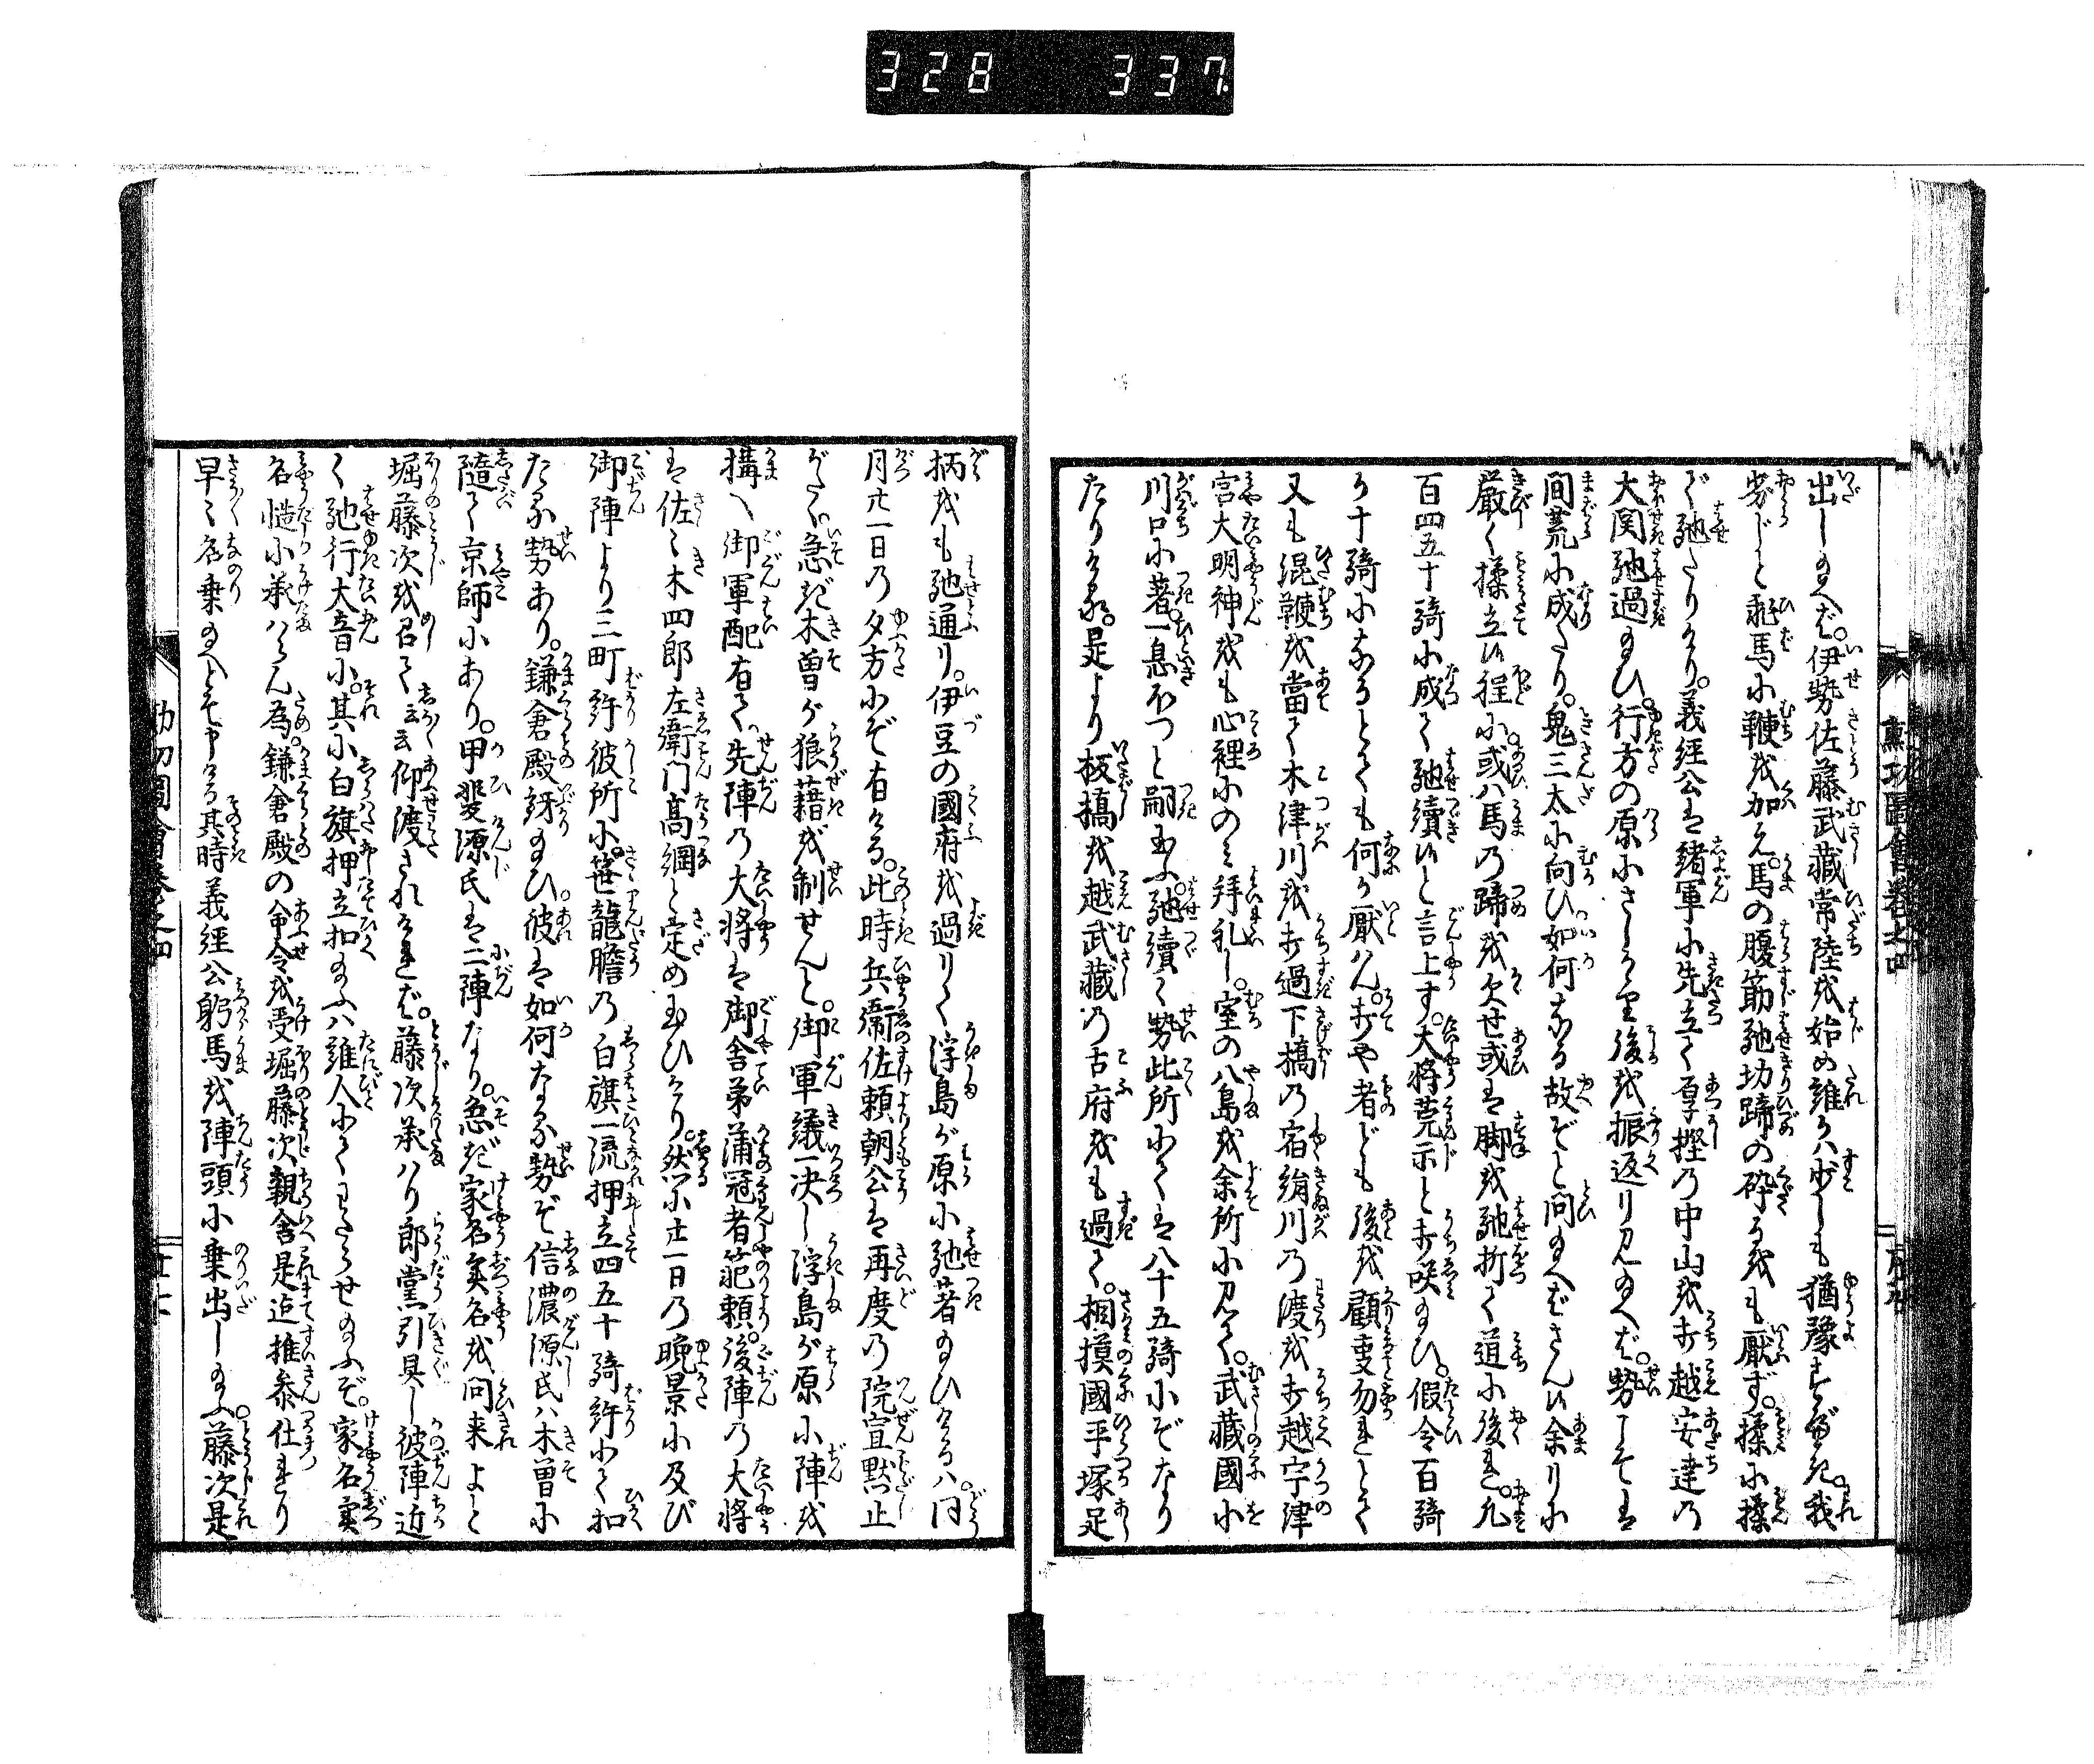 328 337
出しのへば。伊勢佐藤武藏常陸を始め誰かハ少しも猶豫すべき。我
劣じと乘馬に鞭を加え。馬の腹筋馳切蹄の碎るをも厭ず。揉に揉
で馳たりけり。義経公は緒軍に先立て厚樫の中山を打越安達の
大関馳過給ひ。行方の原にさしかゝり後を振返り見給へば。勢こそは
間荒に成たり。鬼三太に向ひ如何なる故ぞと問給へばさん候余りに
厳く揉立候程に。或ハ馬の蹄を欠せ或は脚を馳折て道に後れ。凡
百四五十騎に成て馳續候と言上す。大将莞示と打咲給ひ。假令百騎
が十騎になるとても何か厭ハん。打や者ども後を顧事勿れとて
又も混鞭を當て木津川を打過下橋の宿絹川の渡を打越宇津
宮大明神をも心裡にのみ拜礼し。室の八島を余所に見て。武藏國小
川口に著。一息ほつと嗣玉ふ。馳續く勢此所にては八十五騎にぞなり
たりける。是より板橋を越武藏の古府をも過て。相摸國平塚足
勲功圖會卷之四
柄をも馳通り。伊豆の國府を過りて浮島が原に馳著給ひけるハ。同
月廿一日の夕方にぞ有ける。此時兵衞佐頼朝公は再度の院宣黙止
がたく急ぎ木曽が狼藉を制せんと。御軍議一决し浮島が原に陣を
搆へ御軍配有て。先陣の大將は御舎弟蒲冠者範頼。後陣の大將
は佐々木四郎左衛门髙綱と定め玉ひけり。然に廿一日の晩景に及び
御陣より三町許彼所に。笹龍膽の白旗一流押立四五十騎許にて扣
たる勢あり。鎌倉殿訝給ひ。彼は如何なる勢ぞ信濃源氏ハ木曽に
隨て京師にあり。甲斐源氏は二陣なり。急ぎ家名実名を問来よと
堀藤次を召て云云仰渡されければ。藤次承ハり郎党引具し彼陣近
く馳行大音に。其に白旗押立扣給ふハ誰人にてわたらせ給ふぞ。家名実
名慥に承ハらん為。鎌倉殿の命令を受堀藤次親舎是迄推参仕れり
早〻名乗給へとぞ申ける其時義経公躬馬を陣頭に乗出し給ふ。藤次是